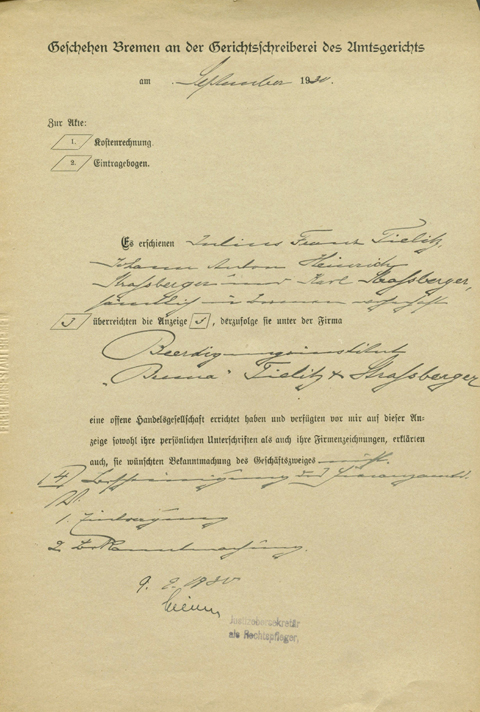 Geschehen Bremen an der Gerichtsschreiberei des Amtsgerichts
am September 1930.
Zur Akte:
1. Kostenrechnung.
2. Eintragebogen.
Es erschienen Julius Franz Tielitz,
Johann Anton Heinrich
Straßberger und Karl Straßberger,
sämtlich in Bremen wohnhaft
3 überreichten die Anzeige 5, derzufolge sie unter der Firma
Beerdigungsinstitut
„Brema" Tielitz & Strassberger
eine offene Handelsgesellschaft errichtet haben und verfügten vor mir auf dieser An-
zeige sowohl ihre persönlichen Unterschriften als auch ihre Firmenzeichnungen, erklärten
auch, sie wünschten Bekanntmachung des Geschäftszweiges nicht.
4) Bescheinigung des Finanzamts.
1. Eintragung
2. Bekanntmachung.
9. 2. 1930
Justizobersekretär
als Rechtspfleger.